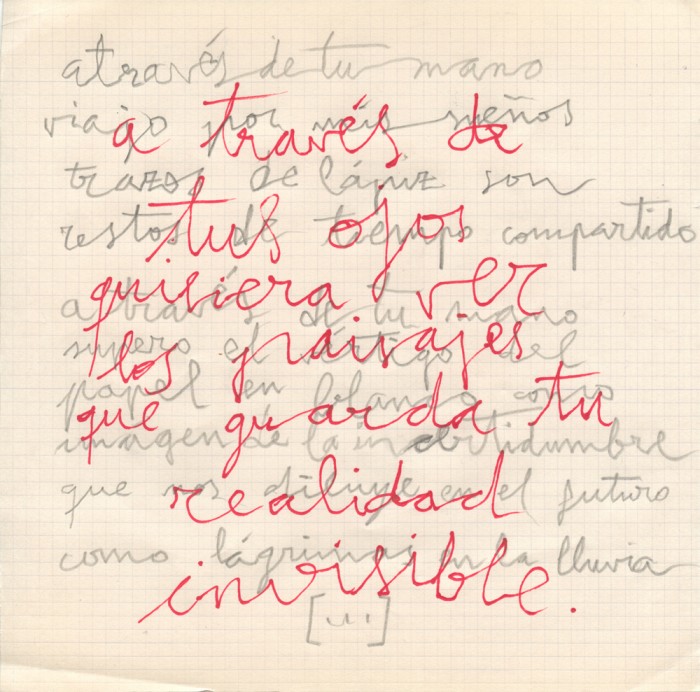 através de tu mano
viajo por mis sueños
trazos de lápiz son
restos de tiempo compartido
a través de tu mano
supero el vértigo del
papel en blanco como
imagen de la incertidumbre
que nos diluye en el futuro
como lágrimas en la lluvia
[...]
a través de
tus ojos
quisiera ver
los paisajes
que guarda tu
realidad
invisible.